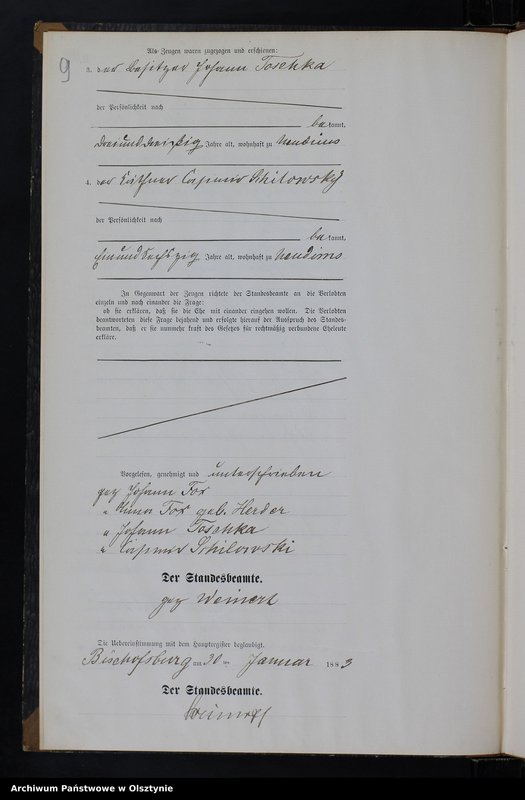 9
Als Zeugen waren zugezogen und erschienen:
3. der Besitzer Johann Toschka
der Persönlichkeit nach
bekannt,
dreiunddreißig Jahre alt, wohnhaft zu Neudims
4. der Käthner Casimir Schilowsky
der Persönlichkeit nach
bekannt,
Einundsechszig Jahre alt, wohnhaft zu Neudims
In Gegenwart der Zeugen richtete der Standesbeamte an die Verlobten
einzeln und nach einander die Frage:
ob sie erklären, daß sie die Ehe mit einander eingehen wollen. Die Verlobten
beantworteten diese Frage bejahend und erfolgte hierauf der Ausspruch des Standes-
beamten, daß er sie nunmehr kraft des Gesetzes für rechtmäßig verbundene Eheleute
erkläre.
Vorgelesen, genehmigt und unterschrieben
gez Johann Fox
" Anna Fox geb. Herder
" Johann Toschka
" Casimir Schilowski
Der Standesbeamte.
gez Weinert
Die Uebereinstimmung mit dem Hauptregister beglaubigt.
Bischofsburg am 30 ten Januar 1883
Der Standesbeamte.
Weinert
Archiwum Państwowe w Olsztynie